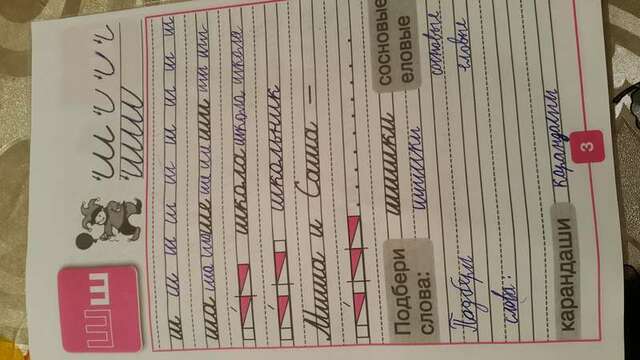 Шш
ш ш ш ш ш ш ш ш ш
ша ша ши ши ши ши ши
школа школа школа
школьник
Миша и Саша –
Подбери слова:
шишки
сосновые
еловые
шишки
сосновые
еловые
Подбери
слова:
карандаши
карандаши
3